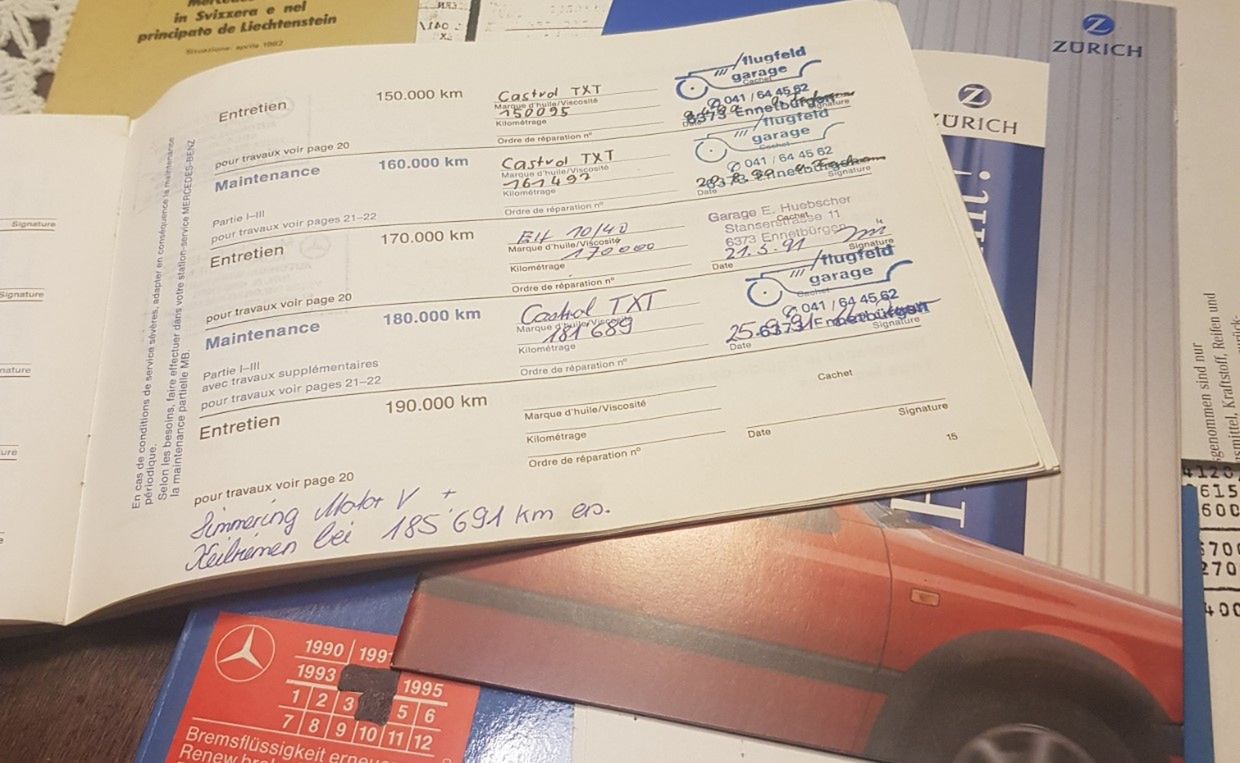 in Svizzera e nel
principato de Liechtenstein
Situazione: aprile 1982
ZÜRICH
ZÜRICH
En cas de conditions de service sévères, adapter en conséquence la maintenance
périodique.
Selon les besoins, faire effectuer dans votre station-service MERCEDES-BENZ
la maintenance partielle MB.
Entretien 150.000 km
Castrol TXT
Marque d'huile/Viscosité
150095
Kilométrage
Ordre de réparation nº
pour travaux voir page 20
flugfeld
garage
Cachet
041 / 64 45 62
6373 Ennetbürgen
Date
Signature
Maintenance 160.000 km
Castrol TXT
Marque d'huile/Viscosité
161492
Kilométrage
Ordre de réparation nº
Partie I–III
pour travaux voir pages 21–22
flugfeld
garage
Cachet
041 / 64 45 62
6373 Ennetbürgen
Date
Signature
Entretien 170.000 km
10/40
Marque d'huile/Viscosité
170000
Kilométrage
Ordre de réparation nº
pour travaux voir page 20
Garage E. Huebscher
Cachet
Stanserstrasse 11
6373 Ennetbürgen
21.5.91
Date
Signature
Maintenance 180.000 km
Castrol TXT
Marque d'huile/Viscosité
181689
Kilométrage
Ordre de réparation nº
Partie I–III
avec travaux supplémentaires
pour travaux voir pages 21–22
flugfeld
garage
Cachet
041 / 64 45 62
6373 Ennetbürgen
Date
Signature
Entretien 190.000 km
Marque d'huile/Viscosité
Kilométrage
Ordre de réparation nº
pour travaux voir page 20
Cachet
Date
Signature
15
Simmering Motor V +
Keilriemen bei 185'691 km ers.
Signature
Signature
1990 199
1993 1995
1 2 3 5 6
7 8 9 10 11 12
Bremsflüssigkeit
Renew
genommen sind nur
Kraftstoff, Reifen und